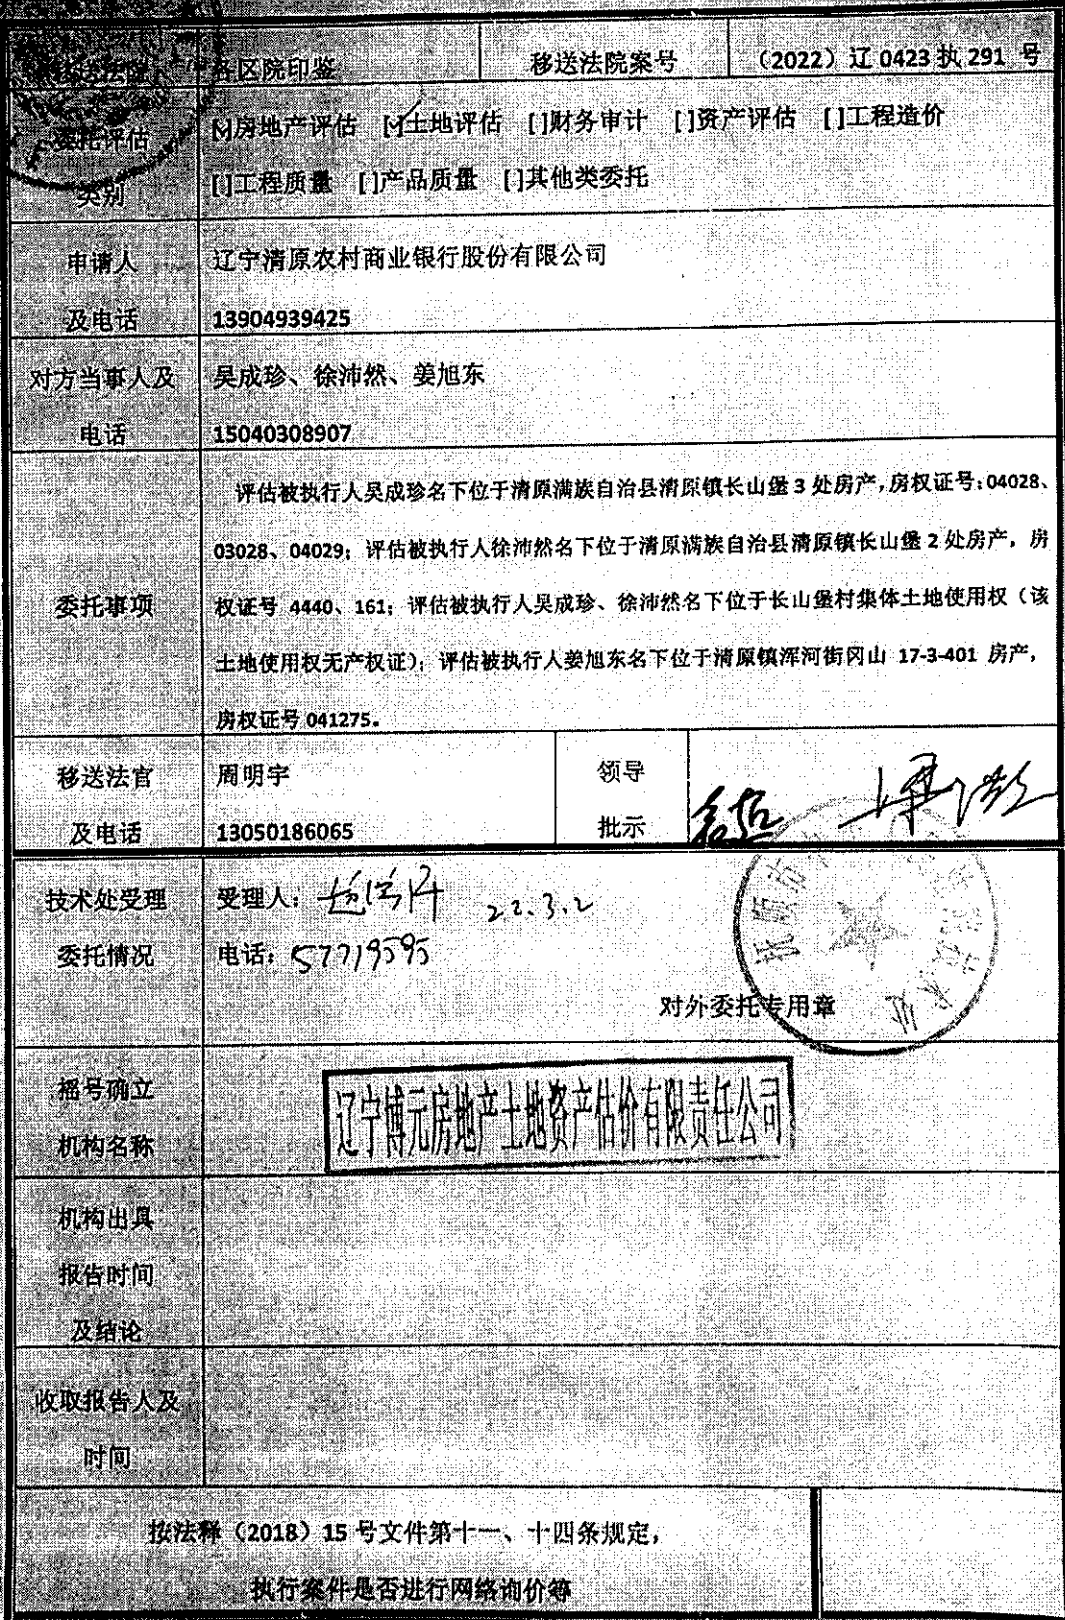 移送法院 各区院印鉴 移送法院案号 （2022）辽 0423 执 291 号
委托评估 [√]房地产评估 [√]土地评估 []财务审计 []资产评估 []工程造价
类别 []工程质量 []产品质量 []其他类委托
申请人 辽宁清原农村商业银行股份有限公司
及电话 13904939425
对方当事人及 吴成珍、徐沛然、姜旭东
电话 15040308907
评估被执行人吴成珍名下位于清原满族自治县清原镇长山堡 3 处房产，房权证号：04028、
03028、04029；评估被执行人徐沛然名下位于清原满族自治县清原镇长山堡 2 处房产，房
委托事项 权证号 4440、161；评估被执行人吴成珍、徐沛然名下位于长山堡村集体土地使用权（该
土地使用权无产权证）；评估被执行人姜旭东名下位于清原镇浑河街冈山 17-3-401 房产，
房权证号 041275。
移送法官 周明宇 领导
及电话 13050186065 批示
技术处受理 受理人： 22.3.2
委托情况 电话：57719595
对外委托专用章
摇号确立
机构名称 辽宁博元房地产土地资产估价有限责任公司
机构出具
报告时间
及结论
收取报告人及
时间
按法释（2018）15 号文件第十一、十四条规定，
执行案件是否进行网络询价等